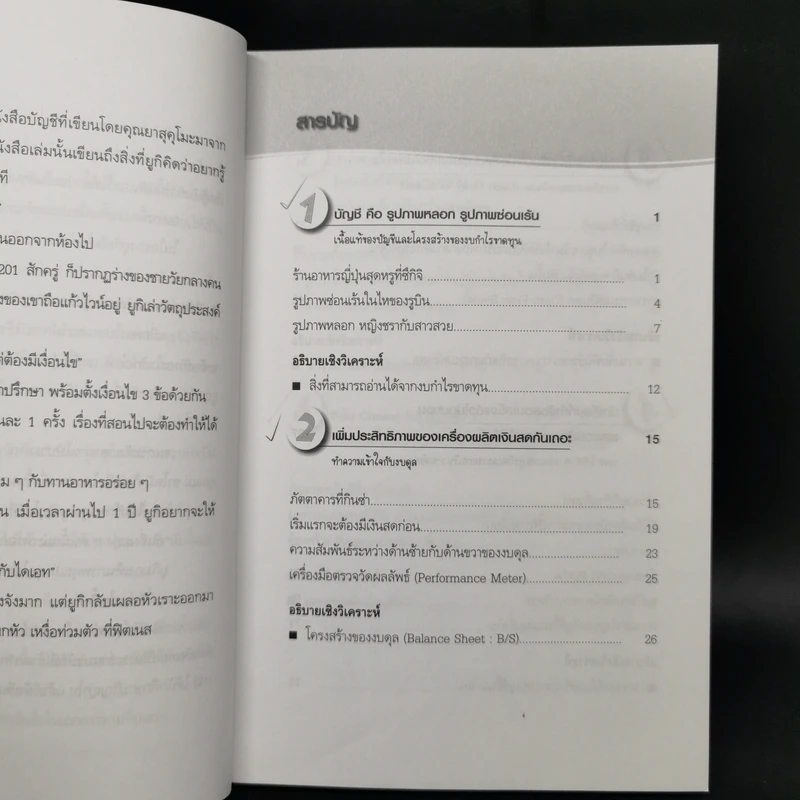 ังสือบัญชีที่เขียนโดยคุณยาสุคุโมะมาจาก
ังสือเล่มนั้นเขียนถึงสิ่งที่ยูกิคิดว่าอยากรู้
ที
นออกจากห้องไป
201 สักครู่ ก็ปรากฏร่างของชายวัยกลางคน
งของเขาถือแก้วไวน์อยู่ ยูกิเล่าวัตถุประสงค์
ต้องมีเงื่อนไข"
าปรึกษา พร้อมตั้งเงื่อนไข 3 ข้อด้วยกัน
นละ 1 ครั้ง เรื่องที่สอนไปจะต้องทำให้ได้
ม ๆ กับทานอาหารอร่อย ๆ
น เมื่อเวลาผ่านไป 1 ปี ยูกิอยากจะให้
กับไดเอท"
งจังมาก แต่ยูกิกลับเผลอหัวเราะออกมา
กหัว เหงื่อท่วมตัว ที่ฟิตเนส
สารบัญ
1 บัญชี คือ รูปภาพหลอก รูปภาพซ่อนเร้น 1
เนื้อแท้ของบัญชีและโครงสร้างของงบกำไรขาดทุน
ร้านอาหารญี่ปุ่นสุดหรูที่ชิกิจิ 1
รูปภาพซ่อนเร้นในไหของรูบิน 4
รูปภาพหลอก หญิงชรากับสาวสวย 7
อธิบายเชิงวิเคราะห์
■ สิ่งที่สามารถอ่านได้จากงบกำไรขาดทุน 12
2 เพิ่มประสิทธิภาพของเครื่องผลิตเงินสดกันเถอะ 15
ทำความเข้าใจกับงบดุล
ภัตตาคารที่กินซ่า 15
เริ่มแรกจะต้องมีเงินสดก่อน 19
ความสัมพันธ์ระหว่างด้านซ้ายกับด้านขวาของงบดุล 23
เครื่องมือตรวจวัดผลลัพธ์ (Performance Meter) 25
อธิบายเชิงวิเคราะห์
■ โครงสร้างของงบดุล (Balance Sheet : B/S) 26